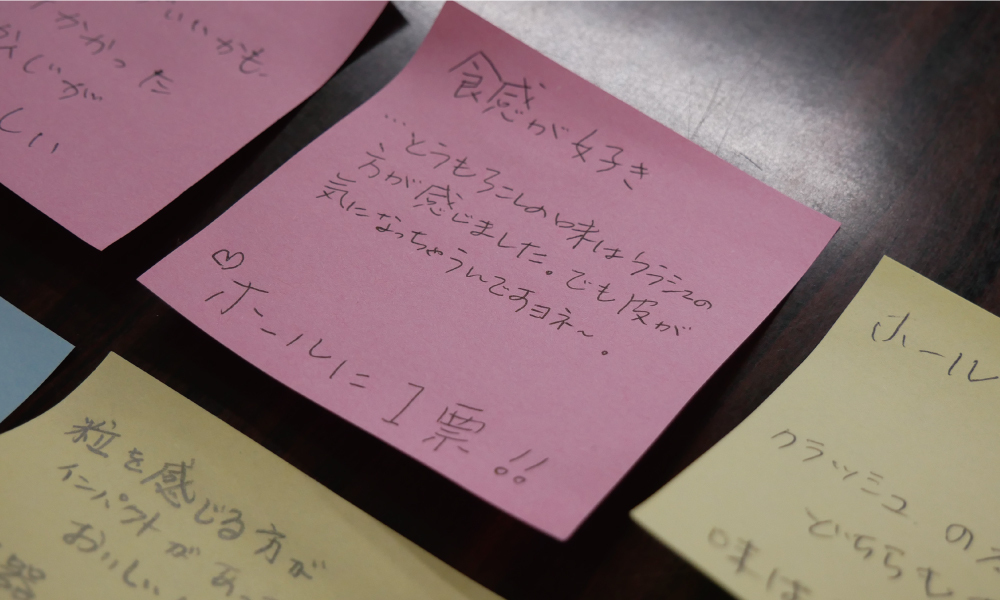 いいかも。
かかった
かんじが
しい
食感が好き
…とうもろこしの味はクラッシュの
方が感じました。でも皮が
気になっちゃうんですヨネ〜。
♡
ホールに1票!!
ホール
クラッシュの方
どちらも
味は
粒を感じる方が
インパクトがあって
おいしい
器